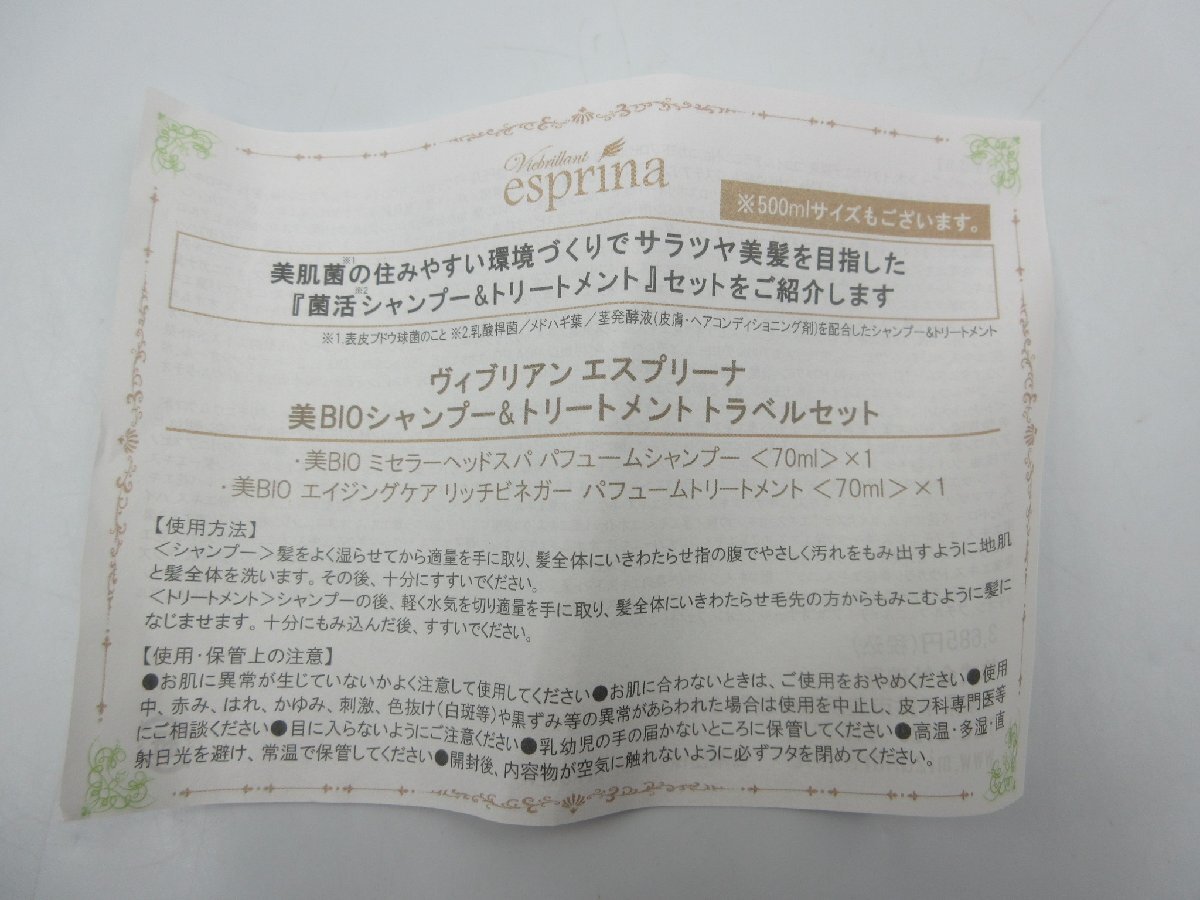 Viebrillant
esprina
※500mlサイズもございます。
美肌菌※1の住みやすい環境づくりで サラツヤ美髪を目指した
『菌活※2シャンプー&トリートメント』セットをご紹介します
※1.表皮ブドウ球菌のこと ※2.乳酸桿菌/メドハギ葉/茎発酵液(皮膚・ヘアコンディショニング剤)を配合したシャンプー&トリートメント
ヴィブリアン エスプリーナ
美BIOシャンプー&トリートメント トラベルセット
・美BIO ミセラーヘッドスパ パフュームシャンプー <70ml>×1
・美BIO エイジングケア リッチビネガー パフュームトリートメント <70ml>×1
【使用方法】
<シャンプー>髪をよく湿らせてから適量を手に取り、髪全体にいきわたらせ指の腹でやさしく汚れをもみ出すように地肌
と髪全体を洗います。その後、十分にすすいでください。
<トリートメント>シャンプーの後、軽く水気を切り適量を手に取り、髪全体にいきわたらせ毛先の方からもみこむように髪に
なじませます。十分にもみ込んだ後、すすいでください。
【使用・保管上の注意】
●お肌に異常が生じていないかよく注意して使用してください●お肌に合わないときは、ご使用をおやめください●使用
中、赤み、はれ、かゆみ、刺激、色抜け(白斑等)や黒ずみ等の異常があらわれた場合は使用を中止し、皮フ科専門医等
にご相談ください●目に入らないようにご注意ください●乳幼児の手の届かないところに保管してください●高温・多湿・直
射日光を避け、常温で保管してください●開封後、内容物が空気に触れないように必ずフタを閉めてください。